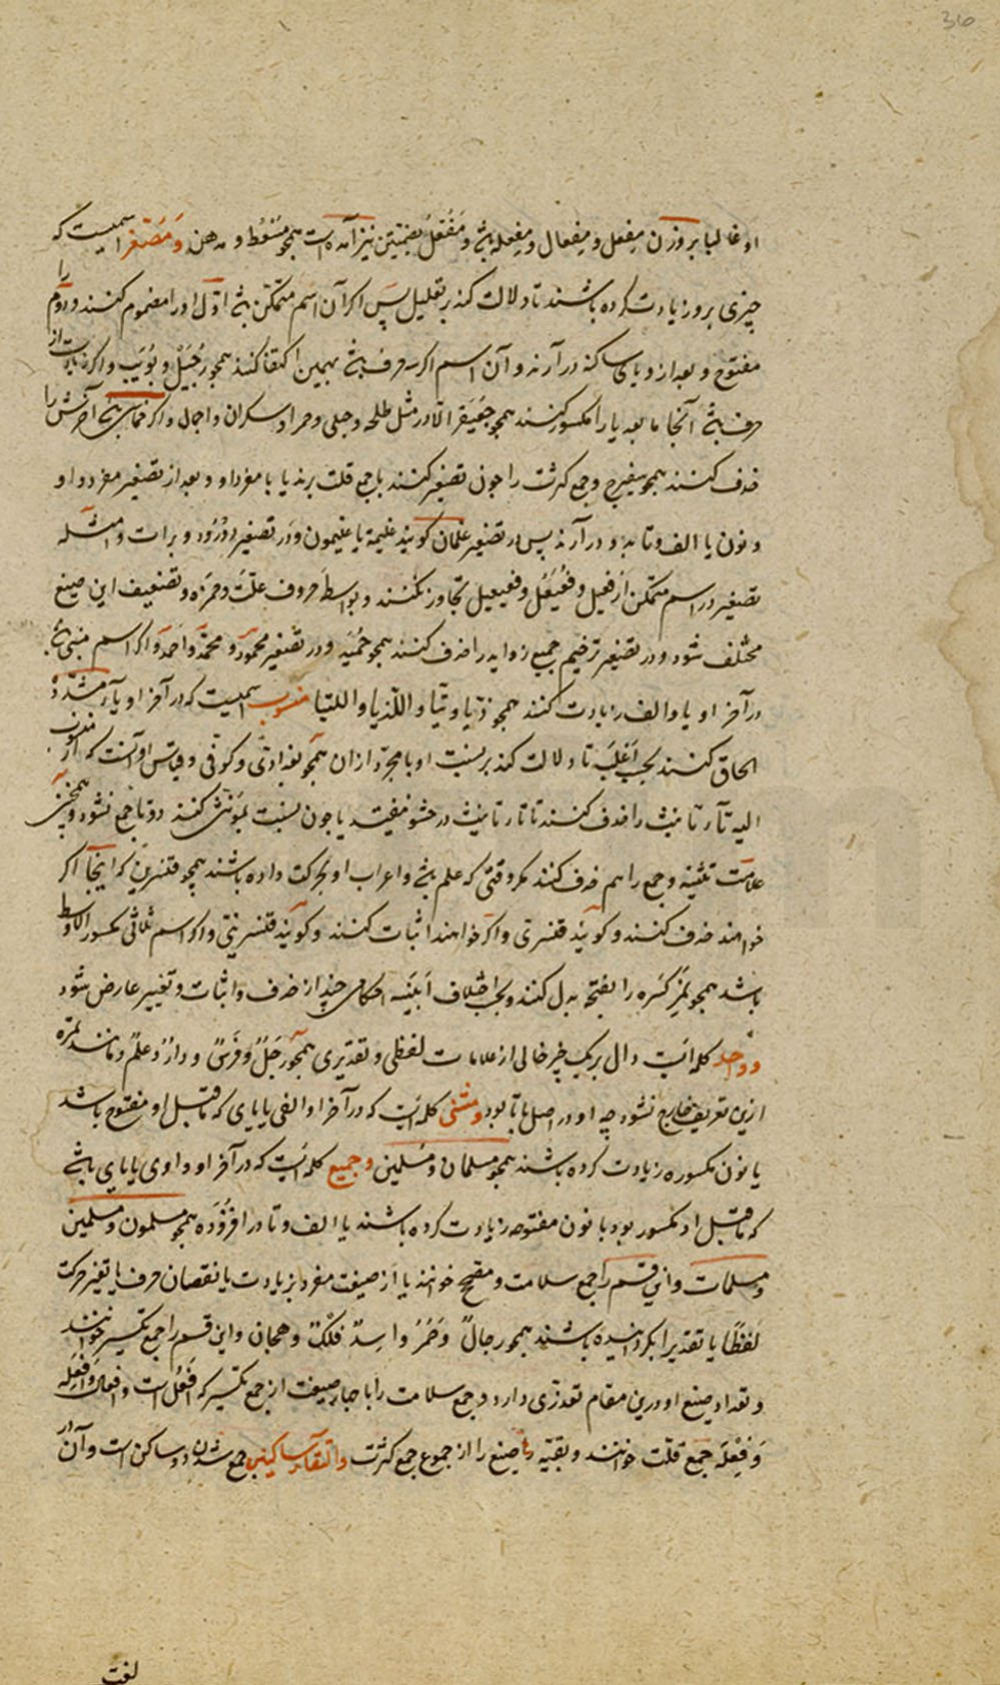 36
او غالبا بر وزن مِفعل و مِفعال و مِفعله باشد و مُفْعُل بضمتین نیز آمده است همچو مُسْعُط و مدهن و مُصَغَّر اسمیست که
چیزی برو زیادت کرده باشند تا دلالت کند بر تقلیل پس اگر آن اسم متمکن باشد اوّل او را مضموم کنند و دوم را
مفتوح و بعد ازو یای ساکنه در آرند و آن اسم اگر سه حرف باشد بهمین اکتفا کنند همچو رُجَیْل و بُوَیْب و اگر زیادت از
حرف باشد آنجا ما بعد یا را مکسور کنند همچو جُعَیفِر الّا در مثل طلحه و حبلی و حمرا و سکران و اجمال و اگر خماسی باشد آخرش را
حذف کنند همچو سفیرج و جمع کثرت را چون تصغیر کنند با جمع قلت برند یا با مفرد او و بعد از تصغیر مفرد واو
و نون یا الف و تا بدو در آرند پس در تصغیر غلمان گویند غلیمة یا غلیمون و در تصغیر دُوْر دویرات و امثله
تصغیر در اسم متمکن از فعیل و فُعَیْعِل و فعیعیل تجاوز نکنند و بواسطه حروف علّت و همزه و تضعیف این صیغ
مختلف شود و در تصغیر ترخیم جمیع زواید را حذف کنند همچو حُمَیْد در تصغیر محمود و محمّد و احمد و اگر اسم مبنی باشد
در آخر او یا و الف زیادت کنند همچو ذیّا و تیّا و اللّذیا و اللتیا منسوب اسمیست که در آخر او یاء مشدّده
الحاق کنند بحسب اغلب تا دلالت کند بر نسبت او با مجرّد از ان همچو بغدادی و کوفی و قیاس او آنست که از منسوب
الیه تاء تانیث را حذف کنند تا تاء تانیث در حشو نیفتد یا چون نسبت بمؤنث کنند دو تا جمع نشود و همچنین
علامت تثنیه و جمع را هم حذف کنند مگر وقتی که علم باشد و اعراب او بحرکت داده باشند همچو قنسرین که اینجا اگر
خواهند حذف کنند و گویند قنسری و اگر خواهند اثبات کنند و گویند قنسرینی و اگر اسم ثلاثی مکسور الاوسط
باشد همچو نَمِر کسره را بفتحه بدل کنند و بحسب اختلاف ابنیه احکامی چند از حذف و اثبات و تغییر عارض شود
و واحد کلمه‌ایست دال بر یک چیز خالی از علامات لفظی و تقدیری همچو رجلٌ و فرسٌ و دارٌ و علمٌ و مانند تمره
ازین تعریف خارج نشود چه او در اصل با تا بود و مثنی کلمه‌ایست که در آخر او الفی یا یای که ما قبل او مفتوح باشد
با نون مکسوره زیادت کرده باشند همچو مسلمان و مسلمین و جمع کلمه‌ایست که در آخر او واوی یا یای باشد
که ما قبل او مکسور بود با نون مفتوحه زیادت کرده باشند یا الف و تا در افزوده همچو مسلمون و مسلمین
و مسلمات و این قسم را جمع سلامت و مصحح خوانند یا از صیغت مفرد بزیادت یا نقصان حرف یا تغیر حرکت
لفظاً یا تقدیرا بگردانیده باشند همچو رجالٌ و حُمُرٌ و اسدٌ فُلْکٌ و هجان و این قسم را جمع تکسیر خوانند
و تعداد صیغ او درین مقام تعذری دارد و جمع سلامت را با چهار صیغت از جمع تکسیر که أفعُل است و أفعال و أفعِله
و فِعْلَه جمع قلّت خوانند و بقیّه صیغ را از جموع جمع کثرت و التقاء ساکنین جمع شدن دو ساکن است و آن در
لغت